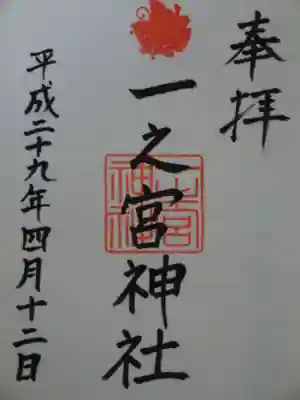 奉拝
一之宮神社
平成二十九年四月十二日